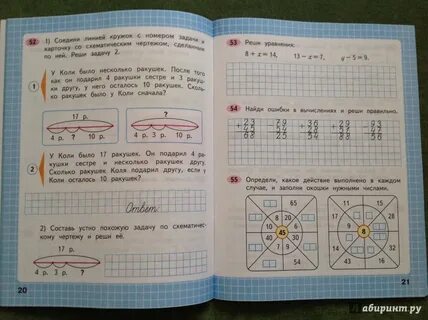 52 1) Соедини линией кружок с номером задачи и
карточку со схематическим чертежом, сделанным
по ней. Реши задачу 2.
1
У Коли было несколько ракушек. После того
как он подарил 4 ракушки сестре и 3 ракуш-
ки другу, у него осталось 10 ракушек. Сколь-
ко ракушек было у Коли сначала?
17 р.
4 р. ? 10 р.
?
4 р. 3 р. 10 р.
2
У Коли было 17 ракушек. Он подарил 4 ра-
кушки сестре и несколько ракушек другу.
Сколько ракушек Коля подарил другу, если у
Коли осталось 10 ракушек?
Ответ:
2) Составь устно похожую задачу по схематическому
чертежу и реши её.
17 р.
4 р. 3 р. ?
20
53 Реши уравнения:
8 + x = 14, 13 − x = 7, y − 5 = 9.
54 Найди ошибки в вычислениях и реши правильно.
55 Определи, какое действие выполнено в каждом
случае, и заполни окошки нужными числами.
45
8
21
абиринт.ру